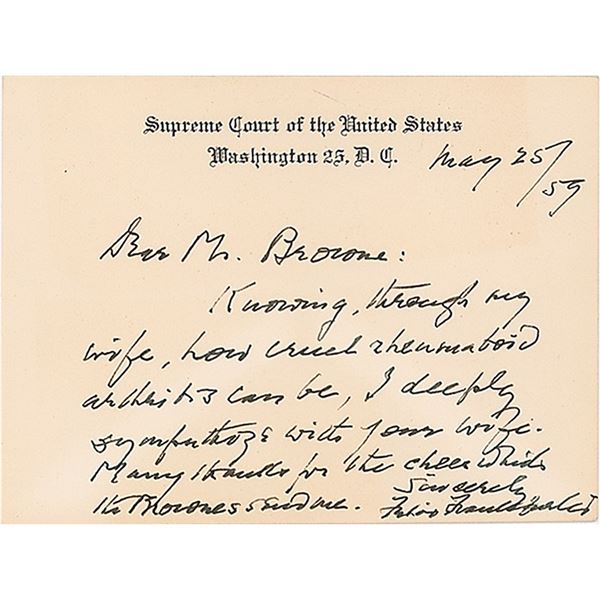 Supreme Court of the United States
Washington 25, D.C.
May 25/59
Dear Mr. Browne:
Knowing, through my
wife, how cruel rheumatoid
arthritis can be, I deeply
sympathize with your wife.
Many thanks for the cheer which
the Brownes send me.
Sincerely
Felix Frankfurter